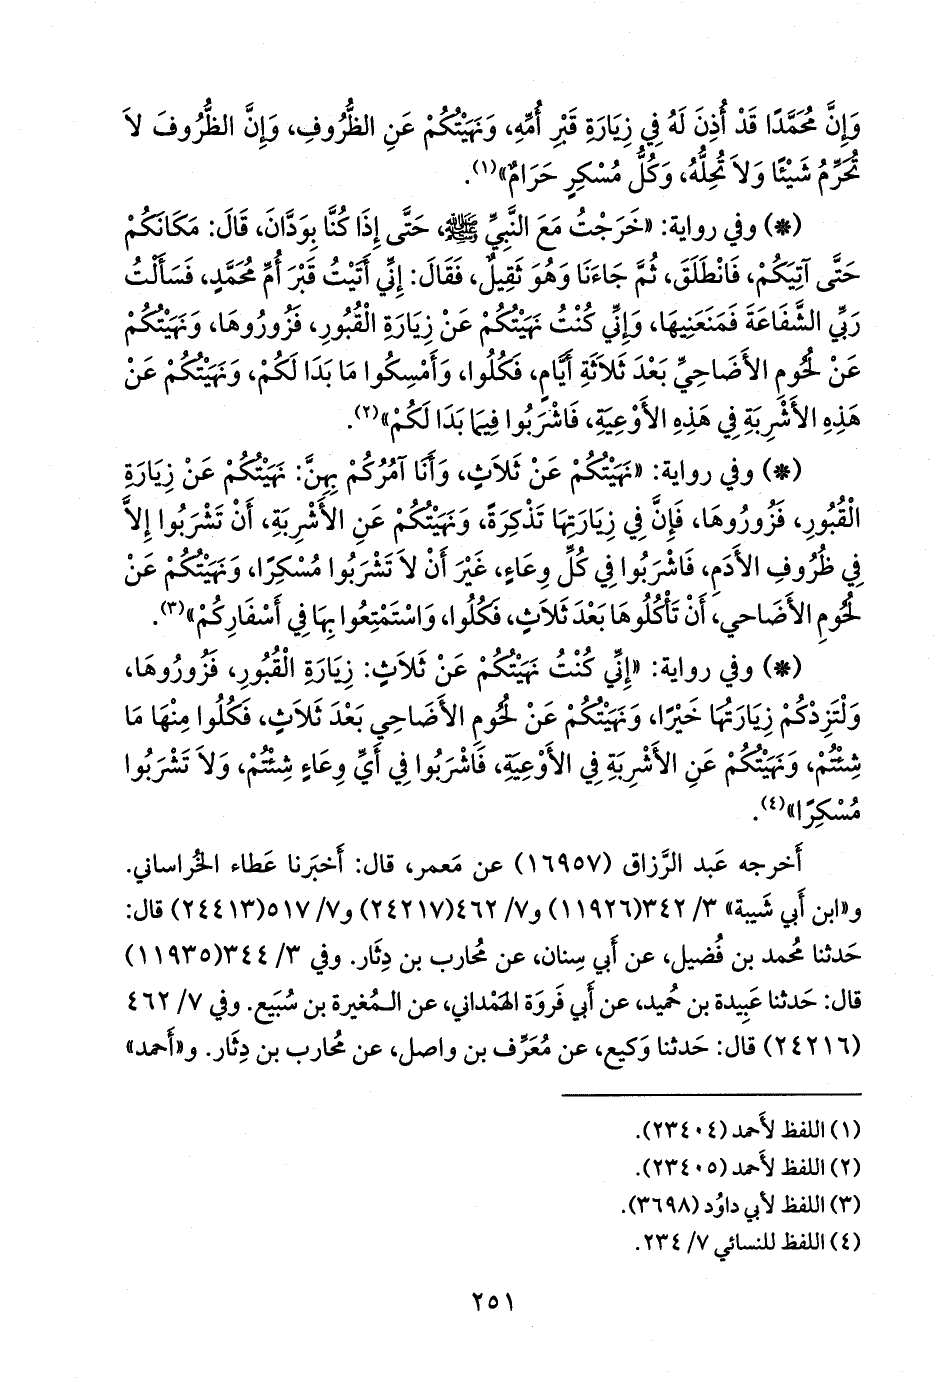 وَإِنَّ مُحَمَّدًا قَدْ أُذِنَ لَهُ فِي زِيَارَةِ قَبْرِ أُمِّهِ، وَنَهَيْتُكُمْ عَنِ الظُّرُوفِ، وَإِنَّ الظُّرُوفَ لاَ
تُحَرِّمُ شَيْئًا وَلاَ تُحِلُّهُ، وَكُلُّ مُسْكِرٍ حَرَامٌ»(١).
(*) وفي رواية: «خَرَجْتُ مَعَ النَّبِيِّ ﷺ، حَتَّى إِذَا كُنَّا بِوَدَّانَ، قَالَ: مَكَانَكُمْ
حَتَّى آتِيَكُمْ، فَانْطَلَقَ، ثُمَّ جَاءَنَا وَهُوَ ثَقِيلٌ، فَقَالَ: إِنِّي أَتَيْتُ قَبْرَ أُمِّ مُحَمَّدٍ، فَسَأَلْتُ
رَبِّي الشَّفَاعَةَ فَمَنَعَنِيهَا، وَإِنِّي كُنْتُ نَهَيْتُكُمْ عَنْ زِيَارَةِ الْقُبُورِ، فَزُورُوهَا، وَنَهَيْتُكُمْ
عَنْ لُحُومِ الأَضَاحِيِّ بَعْدَ ثَلاَثَةِ أَيَّامٍ، فَكُلُوا، وَأَمْسِكُوا مَا بَدَا لَكُمْ، وَنَهَيْتُكُمْ عَنْ
هَذِهِ الأَشْرِبَةِ فِي هَذِهِ الأَوْعِيَةِ، فَاشْرَبُوا فِيمَا بَدَا لَكُمْ»(٢).
(*) وفي رواية: «نَهَيْتُكُمْ عَنْ ثَلاَثٍ، وَأَنَا آمُرُكُمْ بِهِنَّ: نَهَيْتُكُمْ عَنْ زِيَارَةِ
الْقُبُورِ، فَزُورُوهَا، فَإِنَّ فِي زِيَارَتِهَا تَذْكِرَةً، وَنَهَيْتُكُمْ عَنِ الأَشْرِبَةِ، أَنْ تَشْرَبُوا إِلاَّ
فِي ظُرُوفِ الأَدَمِ، فَاشْرَبُوا فِي كُلِّ وِعَاءٍ، غَيْرَ أَنْ لاَ تَشْرَبُوا مُسْكِرًا، وَنَهَيْتُكُمْ عَنْ
لُحُومِ الأَضَاحي، أَنْ تَأْكُلُوهَا بَعْدَ ثَلاَثٍ، فَكُلُوا، وَاسْتَمْتِعُوا بِهَا فِي أَسْفَارِكُمْ»(٣).
(*) وفي رواية: «إِنِّي كُنْتُ نَهَيْتُكُمْ عَنْ ثَلاَثٍ: زِيَارَةِ الْقُبُورِ، فَزُورُوهَا،
وَلْتَزِدْكُمْ زِيَارَتُهَا خَيْرًا، وَنَهَيْتُكُمْ عَنْ لُحُومِ الأَضَاحِي بَعْدَ ثَلاَثٍ، فَكُلُوا مِنْهَا مَا
شِئْتُمْ، وَنَهَيْتُكُمْ عَنِ الأَشْرِبَةِ فِي الأَوْعِيَةِ، فَاشْرَبُوا فِي أَيِّ وِعَاءٍ شِئْتُمْ، وَلاَ تَشْرَبُوا
مُسْكِرًا»(٤).
أَخرجه عَبد الرَّزاق (١٦٩٥٧) عن مَعمر، قال: أَخبَرنا عَطاء الخُراساني.
و«ابن أَبي شَيبة» ٣/ ٣٤٢(١١٩٢٦) و٧/ ٤٦٢(٢٤٢١٧) و٧/ ٥١٧(٢٤٤١٣) قال:
حَدثنا مُحمد بن فُضيل، عن أَبي سِنان، عن مُحارب بن دِثَار. وفي ٣/ ٣٤٤(١١٩٣٥)
قال: حَدثنا عَبِيدة بن حُميد، عن أَبي فَروَة الهَمْداني، عن المُغيرة بن سُبَيع. وفي ٧/ ٤٦٢
(٢٤٢١٦) قال: حَدثنا وَكيع، عن مُعَرِّف بن واصل، عن مُحارب بن دِثَار. و«أَحمد»
(١) اللفظ لأَحمد (٢٣٤٠٤).
(٢) اللفظ لأَحمد (٢٣٤٠٥).
(٣) اللفظ لأبي داوُد (٣٦٩٨).
(٤) اللفظ للنسائي ٧/ ٢٣٤.
٢٥١